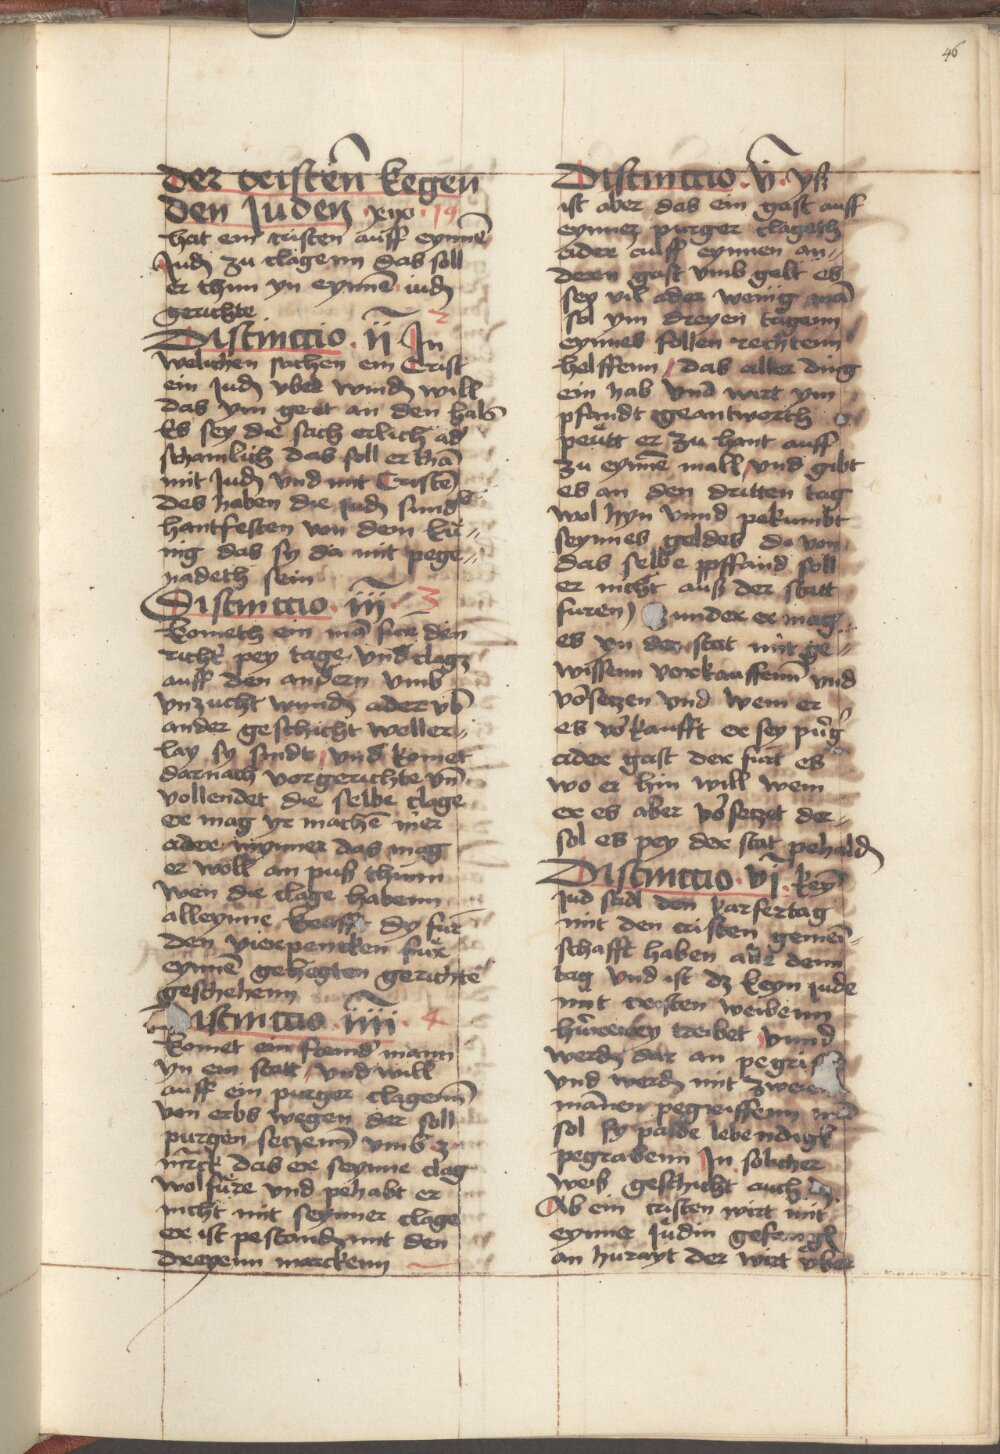 46
der cristen kegen
den Juden xijo 19
hat ein cristen auff eynnē
Judn zu clagenn das soll
er thun yn eynnē iudn
gerichte
Distinctio · ij · In 2
welichen sachen ein Crist
ein Judn vber windn will
das ym geet an den hals
Es sey die sach erlich ad
schamlich das soll er than
mit Judn vnd mit Cristē
des haben die Judn sund
hantfesten von dem kü=
nig das sy da mit pege=
nadeth sein
Distinctio · iij · 3
kometh ein mā fur den
richt pey tage vnd clagz
auff den andern vmb
vnzucht wundn ader vb
ander geschicht weller=
lay sy sindt vnd komet
darnach vorgerichte vn
vollendet die selbe clage
er mag yr machē mer
ader mynner das mag
er woll an puß thunn
wen die clage habenn
alleynne krafft dy fur
den vierpencken für
eynnē gehegten gerichte
geschehenn
Distinctio · iiij · 4
komet ein fremd mann
yn ein statt vnd will
auff ein purger clagenn
von erbs wegen der soll
purgen setzenn vmb 3
mrck das er seynne clag
wolfüre vnd pehabt er
nicht mit seynner clage
er ist pestandn mit den
dreyenn marckenn
Distinctio · v · yß
ist aber das ein gast auff
eynner purger clageth
ader auff eynnen an=
deren gast vmb gelt es
sey vil ader wenig man
sol ym dreyen tagenn
eynnes sollen rechtenn
helffenn das alter ding
ein hab vnd wirt ym
pfandt geantworth
peütt er zu hant auff
zu eynnē mall vnd gibt
es an den dritten tag
wol hyn vnnd pekumbt
seynnes geldes do von
das selbe ppffand soll
er nicht auß der statt
furen) under er mag
es yn der stat mit ge=
wissenn vorkauffenn vnd
vorsetzen vnd wem er
es vkaufft er sey purg
ader gast der furt es
wo er hin will wem
er es aber vorsetzet der=
sol es pey der stat pehaldn
Distinctio · vj · keyn
Jud sadl den karfertag
mit den cristen gemein=
schafft haben ader denn
tag vnd ist dz keyn Jude
mit cristen weibenn
hürerey treibet vnnd
werdn dar an pegri
vnd werdn mit zweien
mānen pegreiffenn
sol sy palde lebendigk
pegrabenn In solicher
weis geschicht auch
Ab ein cristen wirt mit
eynne Jüdin gefengk
an hurayt der wirt vber